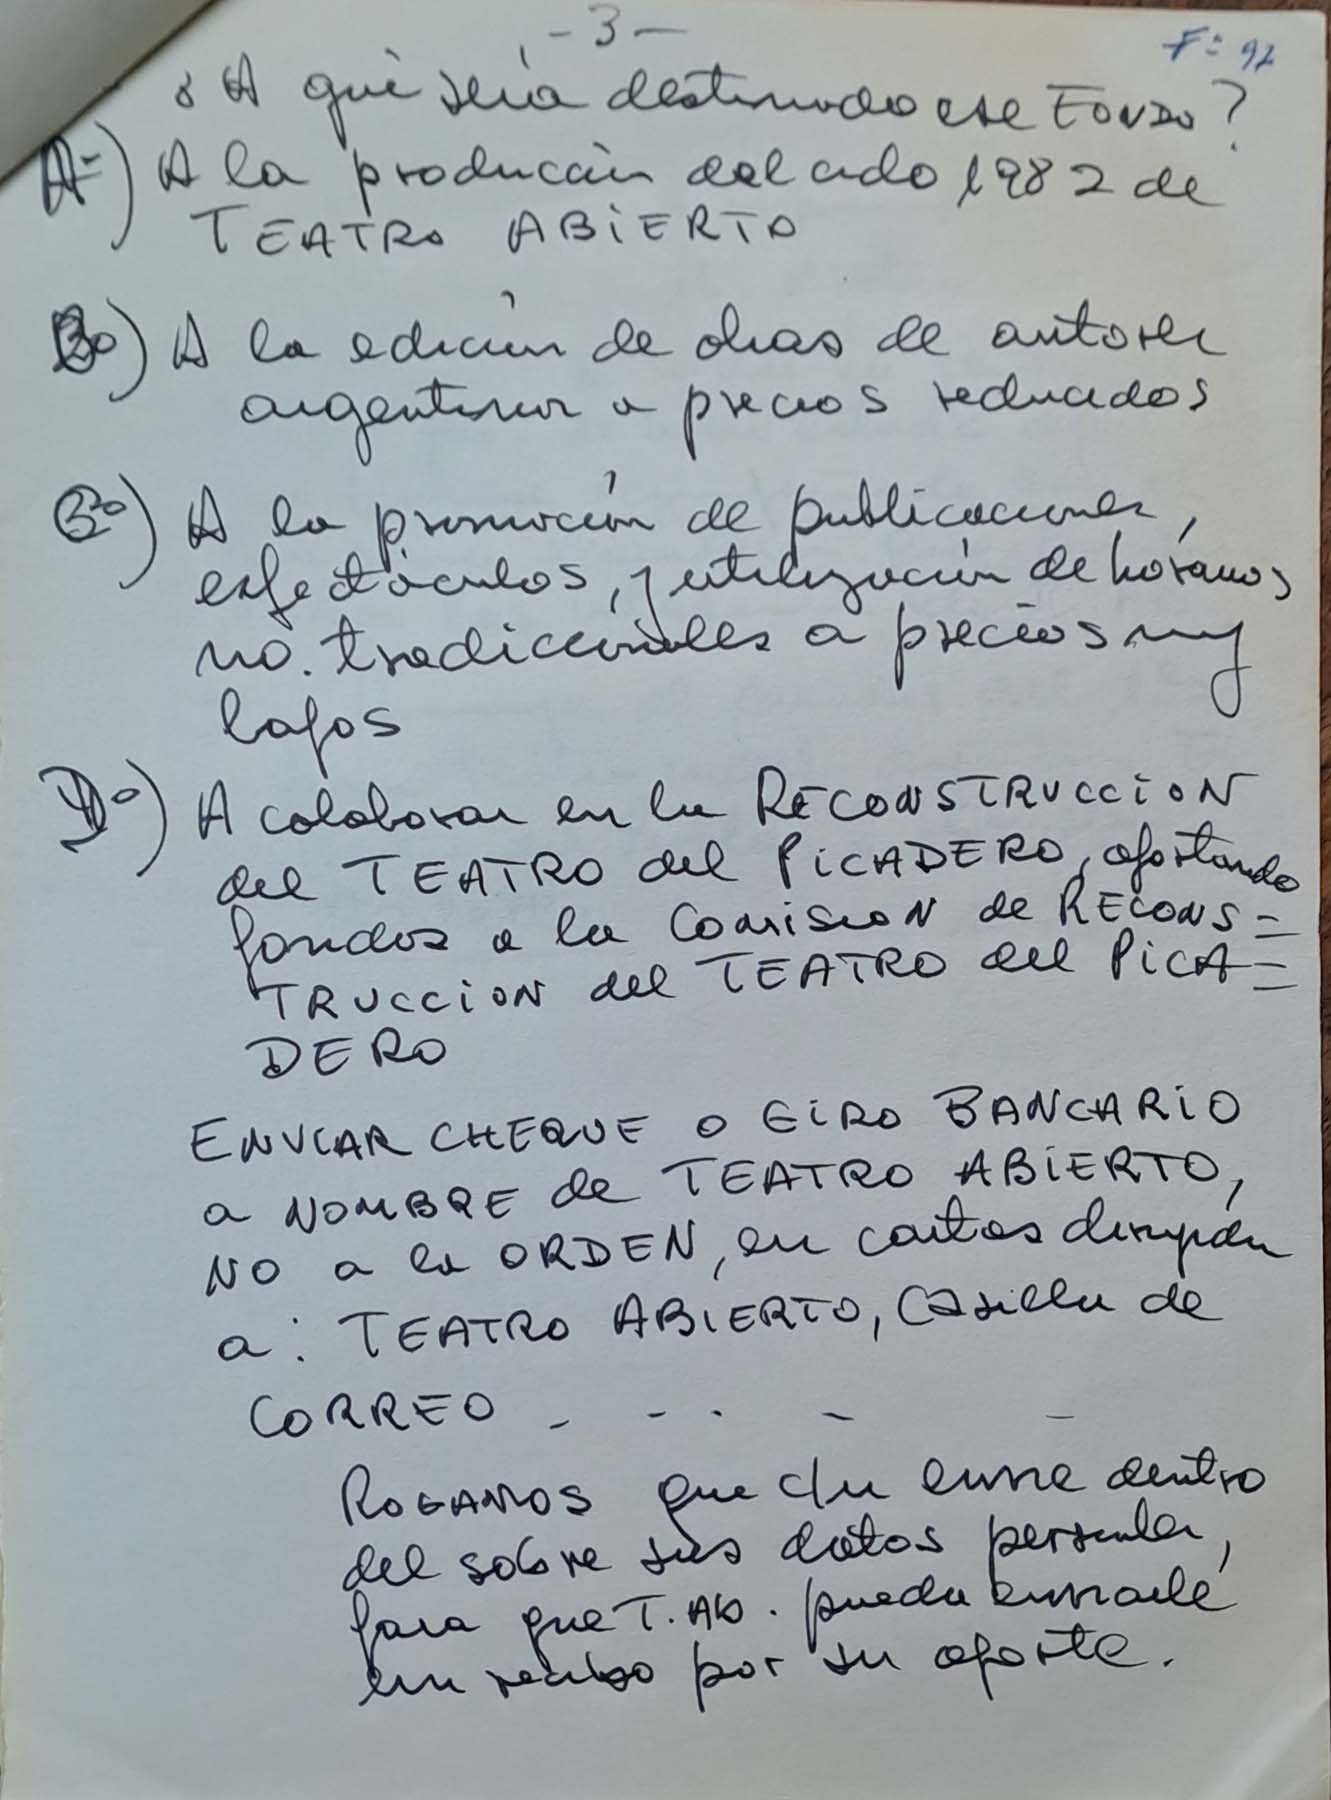 - 3 -
F: 92
¿A qué sería destinado ese FONDO?
A=) A la producción del ciclo 1982 de
TEATRO ABIERTO
Bo) A la edición de obras de autores
argentinos a precios reducidos
Co) A la promoción de publicaciones,
espectáculos, y utilización de horarios
no tradicionales a precios muy
bajos
Do) A colaborar en la RECONSTRUCCION
del TEATRO del PICADERO, aportando
fondos a la COMISION de RECONS=
TRUCCION del TEATRO del PICA=
DERO
ENVIAR CHEQUE o GIRO BANCARIO
a NOMBRE de TEATRO ABIERTO,
NO a la ORDEN, en cartas dirigidas
a: TEATRO ABIERTO, Casilla de
CORREO - - - - -
ROGAMOS que c/u envíe dentro
del sobre sus datos personales,
para que T. Ab. pueda enviarle
un recibo por su aporte.